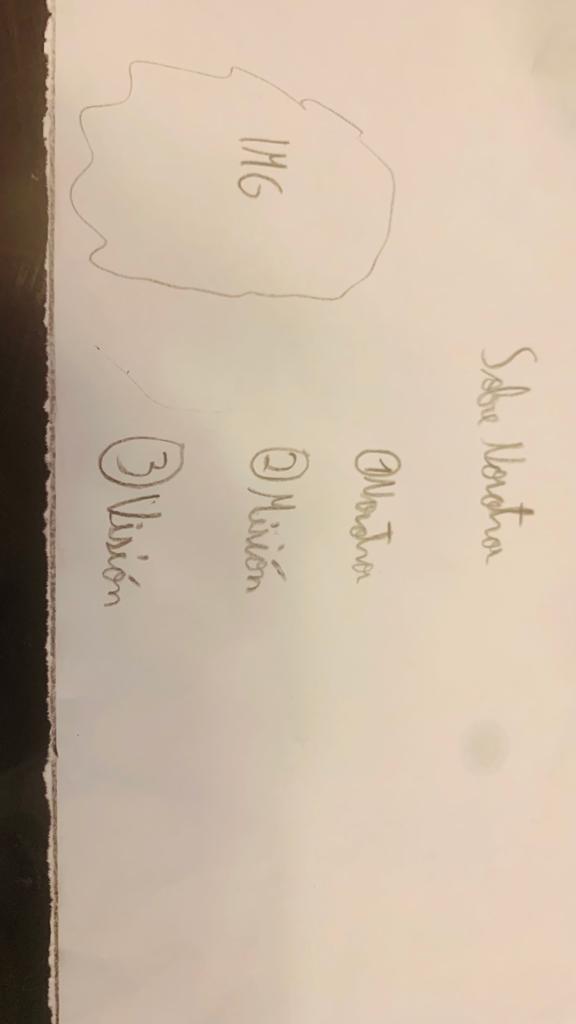 Sobre Nosotros
IMG
① Nosotros
② Misión
③ Visión